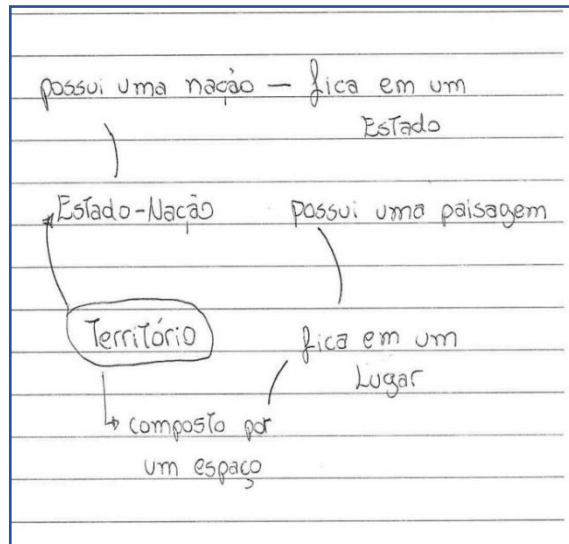 possui uma nação — fica em um
Estado
Estado-Nação possui uma paisagem
Território fica em um
Lugar
composto por
um espaço